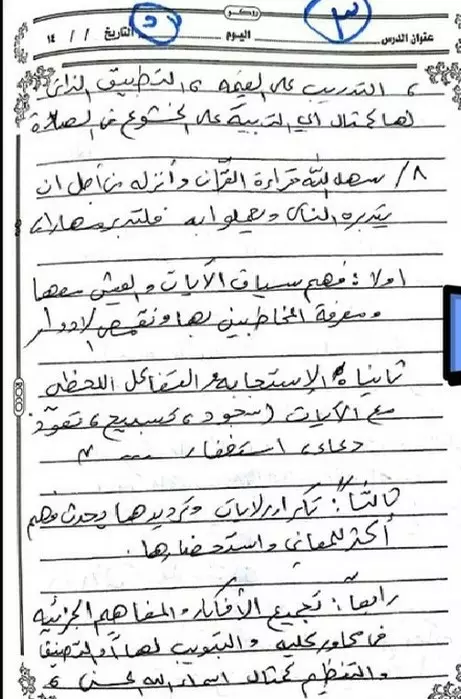 روكو
٣
٥
عنوان الدرس اليوم التاريخ / / ١٤
، التدريب على القيمة ، التطبيق الذاتي
لها كمثال أي التربية على الخشوع في الصلاة
٨/ سهل الله قراءة القرآن وأنزله من أجل ان
يتدبره الناس ويعملوا به فللتدبر مهارات
اولا: فهم سياق الآيات والعيش معها
ومعرفة المخاطبين بها وتقمص الادوار
ثانياً: الإستجابه و التفاعل اللحظي
مع الآيات (سجود، تسبيح، تعوذ
دعاء، استغفار ...
ثالثاً: تكرار الايات وترديدها يحدث فهم
أكثر للمعاني واستحضارها.
رابعاً: تجميع الأفكار والمفاهيم الجزئيه
في محاور كليه والتبويب لها أو التصنيف
والتنظيم كمثال اسماء الله الحسنى
ROCO